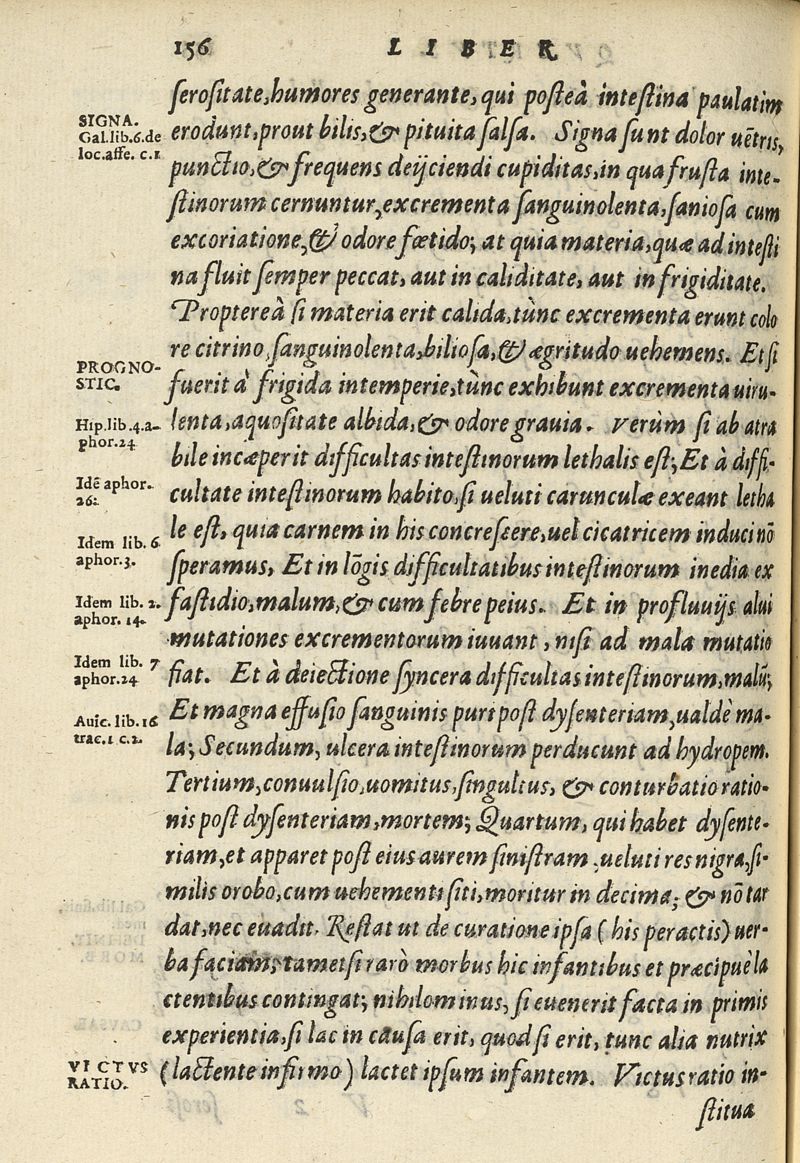 156 LIBER
ſeroſitate, humores generante, qui poſteà inteſtina paulatim
SIGNA.
Gal.lib.6.de
loc.affe. c.1
erodunt, prout bilis, & pituita ſalſa. Signa ſunt dolor uẽtris,
punctio, & frequens deijciendi cupiditas, in qua fruſta inte-
ſtinorum cernuntur, excrementa ſanguinolenta, ſanioſa cum
excoriatione, & odore fœtido; at quia materia, quæ ad inteſti
na fluit ſemper peccat, aut in caliditate, aut in frigiditate.
Proptereà ſi materia erit calida, tùnc excrementa erunt colo
re citrino, ſanguinolenta, bilioſa, & ægritudo uehemens. Et ſi
PROGNO-
STIC.
fuerit à frigida intemperie, tùnc exhibunt excrementa uiru-
Hip.lib.4.a-
phor.24
lenta, aquoſitate albida, & odore grauia. Verùm ſi ab atra
bile incæperit difficultas inteſtinorum lethalis eſt; Et à diffi-
Idẽ aphor.
26.
cultate inteſtinorum habito, ſi ueluti carunculæ exeant letha
le eſt, quia carnem in his concreſcere, uel cicatricem induci nõ
Idem lib. 6
aphor.3.
ſperamus, Et in lõgis difficultatibus inteſtinorum inedia ex
Idem lib. 2.
aphor. 14.
faſtidio, malum, & cum febre peius. Et in profluuijs alui
mutationes excrementorum iuuant, niſi ad mala mutatio
Idem lib. 7
aphor.24
fiat. Et à deiectione ſyncera difficultas inteſtinorum, malũ;
Auic. lib.16
trac.1 c.2.
Et magna effuſio ſanguinis puri poſt dyſenteriam, ualdè ma-
la; Secundum, ulcera inteſtinorum perducunt ad hydropem.
Tertium, conuulſio, uomitus, ſingultus, & conturbatio ratio-
nis poſt dyſenteriam, mortem; Quartum, qui habet dyſente-
riam, et apparet poſt eius aurem ſiniſtram, ueluti res nigra, ſi-
milis orobo, cum uehementi ſiti, moritur in decima; & nõ tar
dat, nec euadit. Reſtat ut de curatione ipſa (his peractis) uer-
ba faciam, tametſi rarò morbus hic infantibus et præcipuè la
ctentibus contingat; nihilominus, ſi euenerit facta in primis
experientia, ſi lac in cauſa erit, quod ſi erit, tunc alia nutrix
VICTVS
RATIO.
(lactente infirmo) lactet ipſum infantem. Victus ratio in-
ſtitua